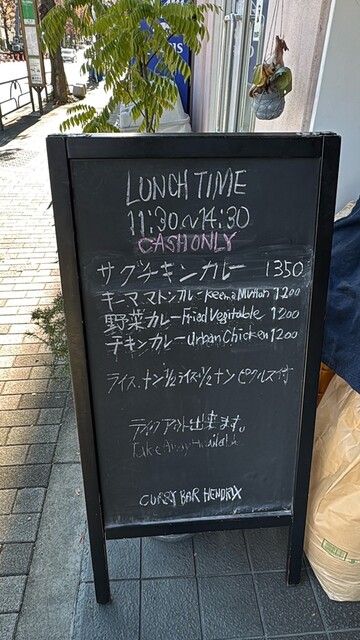 LUNCH TIME
11:30~14:30
CASH ONLY
サグチキンカレー 1350
キーママトンカレー Keema Mutton 1200
野菜カレー Fried Vegitable 1200
チキンカレー Urban Chicken 1200
ライス、ナン、1/2ライス1/2ナン ピクルス付
テイクアウト出来ます。
Take Away Available
CURRY BAR HENDRIX